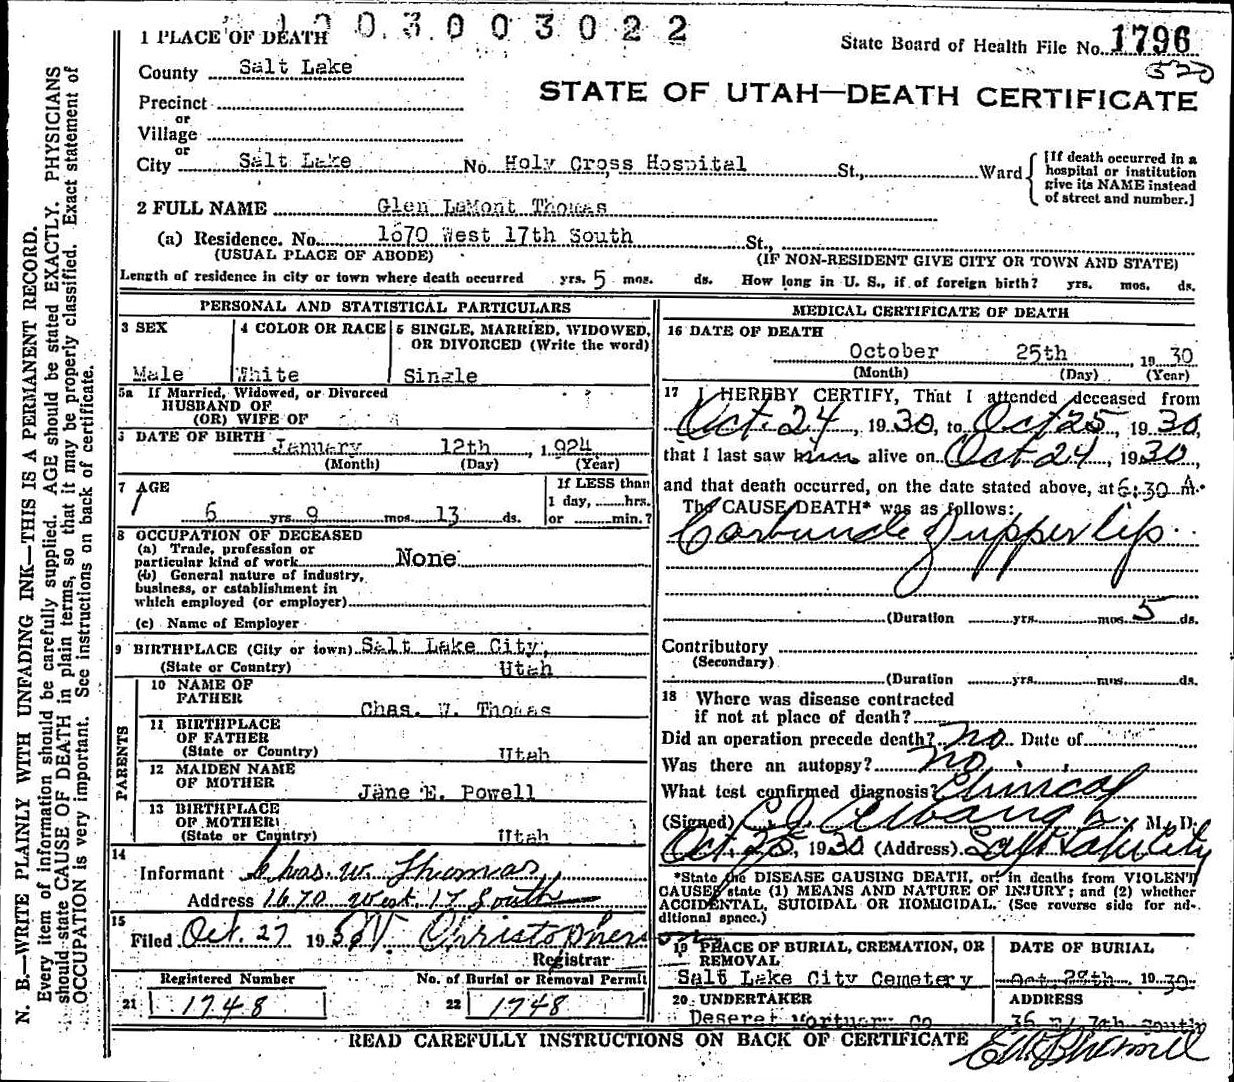 1003003022
State Board of Health File No. 1796
520
1 PLACE OF DEATH
County Salt Lake
STATE OF UTAH—DEATH CERTIFICATE
Precinct
or
Village
or
City Salt Lake No. Holy Cross Hospital St., Ward
[If death occurred in a
hospital or institution
give its NAME instead
of street and number.]
2 FULL NAME Glen LaMont Thomas
(a) Residence. No. 1670 West 17th South St.,
(USUAL PLACE OF ABODE) (IF NON-RESIDENT GIVE CITY OR TOWN AND STATE)
Length of residence in city or town where death occurred yrs. 5 mos. ds. How long in U. S., if of foreign birth? yrs. mos. ds.
PERSONAL AND STATISTICAL PARTICULARS
3 SEX
Male
4 COLOR OR RACE
White
5 SINGLE, MARRIED, WIDOWED,
OR DIVORCED (Write the word)
Single
5a If Married, Widowed, or Divorced
HUSBAND OF
(OR) WIFE OF
6 DATE OF BIRTH January 12th, 1924
(Month) (Day) (Year)
7 AGE
6 yrs. 9 mos. 13 ds.
If LESS than
1 day, hrs.
or min.?
8 OCCUPATION OF DECEASED
(a) Trade, profession or
particular kind of work None
(b) General nature of industry,
business, or establishment in
which employed (or employer)
(c) Name of Employer
9 BIRTHPLACE (City or town) Salt Lake City,
(State or Country) Utah
PARENTS
10 NAME OF
FATHER Chas. W. Thomas
11 BIRTHPLACE
OF FATHER
(State or Country) Utah
12 MAIDEN NAME
OF MOTHER Jane E. Powell
13 BIRTHPLACE
OF MOTHER
(State or Country) Utah
14
Informant Chas. W. Thomas
Address 1670 West 17 South
15
Filed Oct. 27 1930 W. Christophers
Registrar
Registered Number
21 1748
No. of Burial or Removal Permit
22 1748
MEDICAL CERTIFICATE OF DEATH
16 DATE OF DEATH
October 25th, 1930
(Month) (Day) (Year)
17 I HEREBY CERTIFY, That I attended deceased from
Oct. 24, 1930, to Oct 25, 1930,
that I last saw him alive on Oct 24, 1930,
and that death occurred, on the date stated above, at 6:30 A m.
The CAUSE DEATH* was as follows:
Carbuncle of upper lip
(Duration yrs. mos. 5 ds.
Contributory
(Secondary)
(Duration yrs. mos. ds.
18 Where was disease contracted
if not at place of death?
Did an operation precede death? no Date of
Was there an autopsy? no
What test confirmed diagnosis? Clinical
(Signed) M. D.
Oct. 25, 1930 (Address) Salt Lake City
*State the DISEASE CAUSING DEATH, or in deaths from VIOLENT
CAUSES state (1) MEANS AND NATURE OF INJURY; and (2) whether
ACCIDENTAL, SUICIDAL OR HOMICIDAL. (See reverse side for additional space.)
19 PLACE OF BURIAL, CREMATION, OR
REMOVAL
Salt Lake City Cemetery
DATE OF BURIAL
Oct. 28th, 1930
20 UNDERTAKER
Deseret Mortuary Co
ADDRESS
36 E. 7th South
READ CAREFULLY INSTRUCTIONS ON BACK OF CERTIFICATE
N. B.—WRITE PLAINLY WITH UNFADING INK—THIS IS A PERMANENT RECORD.
Every item of information should be carefully supplied. AGE should be stated EXACTLY. PHYSICIANS
should state CAUSE OF DEATH in plain terms, so that it may be properly classified. Exact statement of
OCCUPATION is very important. See instructions on back of certificate.